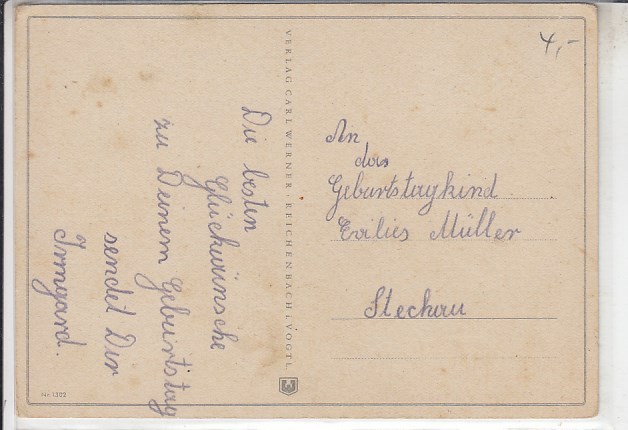 Die besten
Glückwünsche
zu Deinem Geburtstag
sendet Dir
Irmgard.
VERLAG CARL WERNER · REICHENBACH I. VOGTL.
4,-
An
das
Geburtstagkind
Müller
Steckau
Nr. 1302